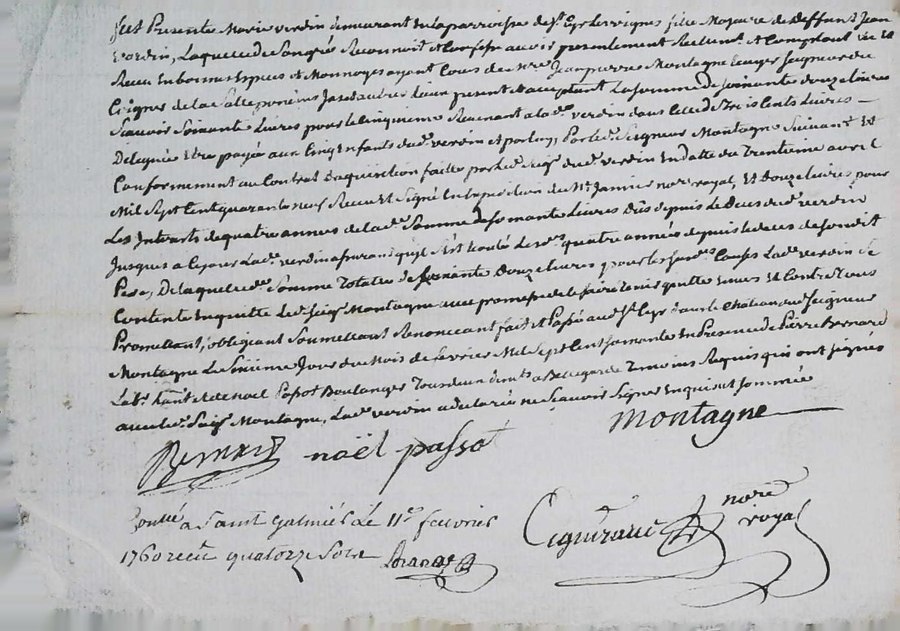 fut Presente Marie verdin demeurant en la parroisse de St Cyr les vignes fille Majeure de deffunt Jean
verdin, Laquelle de son gré Reconnoit et Confesse avoir presentement Reellemt. et Comptant Eü et
Receu en bonnes Especes et Monnoyes ayant Cours de Mre. Jean pierre Montagne Ecuyer Seigneur de
de la Salle et autres lieux present et acceptant La somme de soixante douze livres
Sçavoir Soixante Livres pour le Cinquieme Revenant a lad. verdin dans celle de Trois Cents Livres
Deleguée Etre payée aux Cinq Enfants dud. verdin et par luy, Par led. Seigneur Montagne Suivant et
Conformement au Contrat d'aquisition faitte par led. seigr. dud. verdin en datte du Trentieme avril
Mil Sept Cent quarante neuf Receu et Signé en Expedition de Me. Janvier nore. royal, et Douze livres pour
Les Interets de quatre années de lad. Somme de soixante Livres Dûs depuis le Deces dud. verdin
Jusques a ce jour Lad. verdin assurant qu'il s'est Ecoulé Lesd. quatre années depuis le deces de sondit
Pere, De laquelle Somme Totale de soixante Douze livres, pour les susd. Causes Lad. verdin Se
Contente En quitte Led. seigr. Montagne avec promesse de le faire tenir quitte envers et Contre tous
Promettant, obligeant Soumettant Renoncant fait et Passé aud. St. Cyr dans le Château dud. Seigneur
Montagne Le Sixieme Jour du Mois de fevrier Mil Sept Cent soixante en Presence de Pierre Bernard
et de Noël Passot Boulanger Tous deux de Bellegarde Temoins Requis qui ont signés
avec led. Seigr. Montagne, Lad. verdin a declaré ne Sçavoir Signer Enquise et sommée
Montagne
Bernard noël passot
Conllé a Saint Galmier Le 11e. fevrier
nore royal
1760 receu quatorze sols